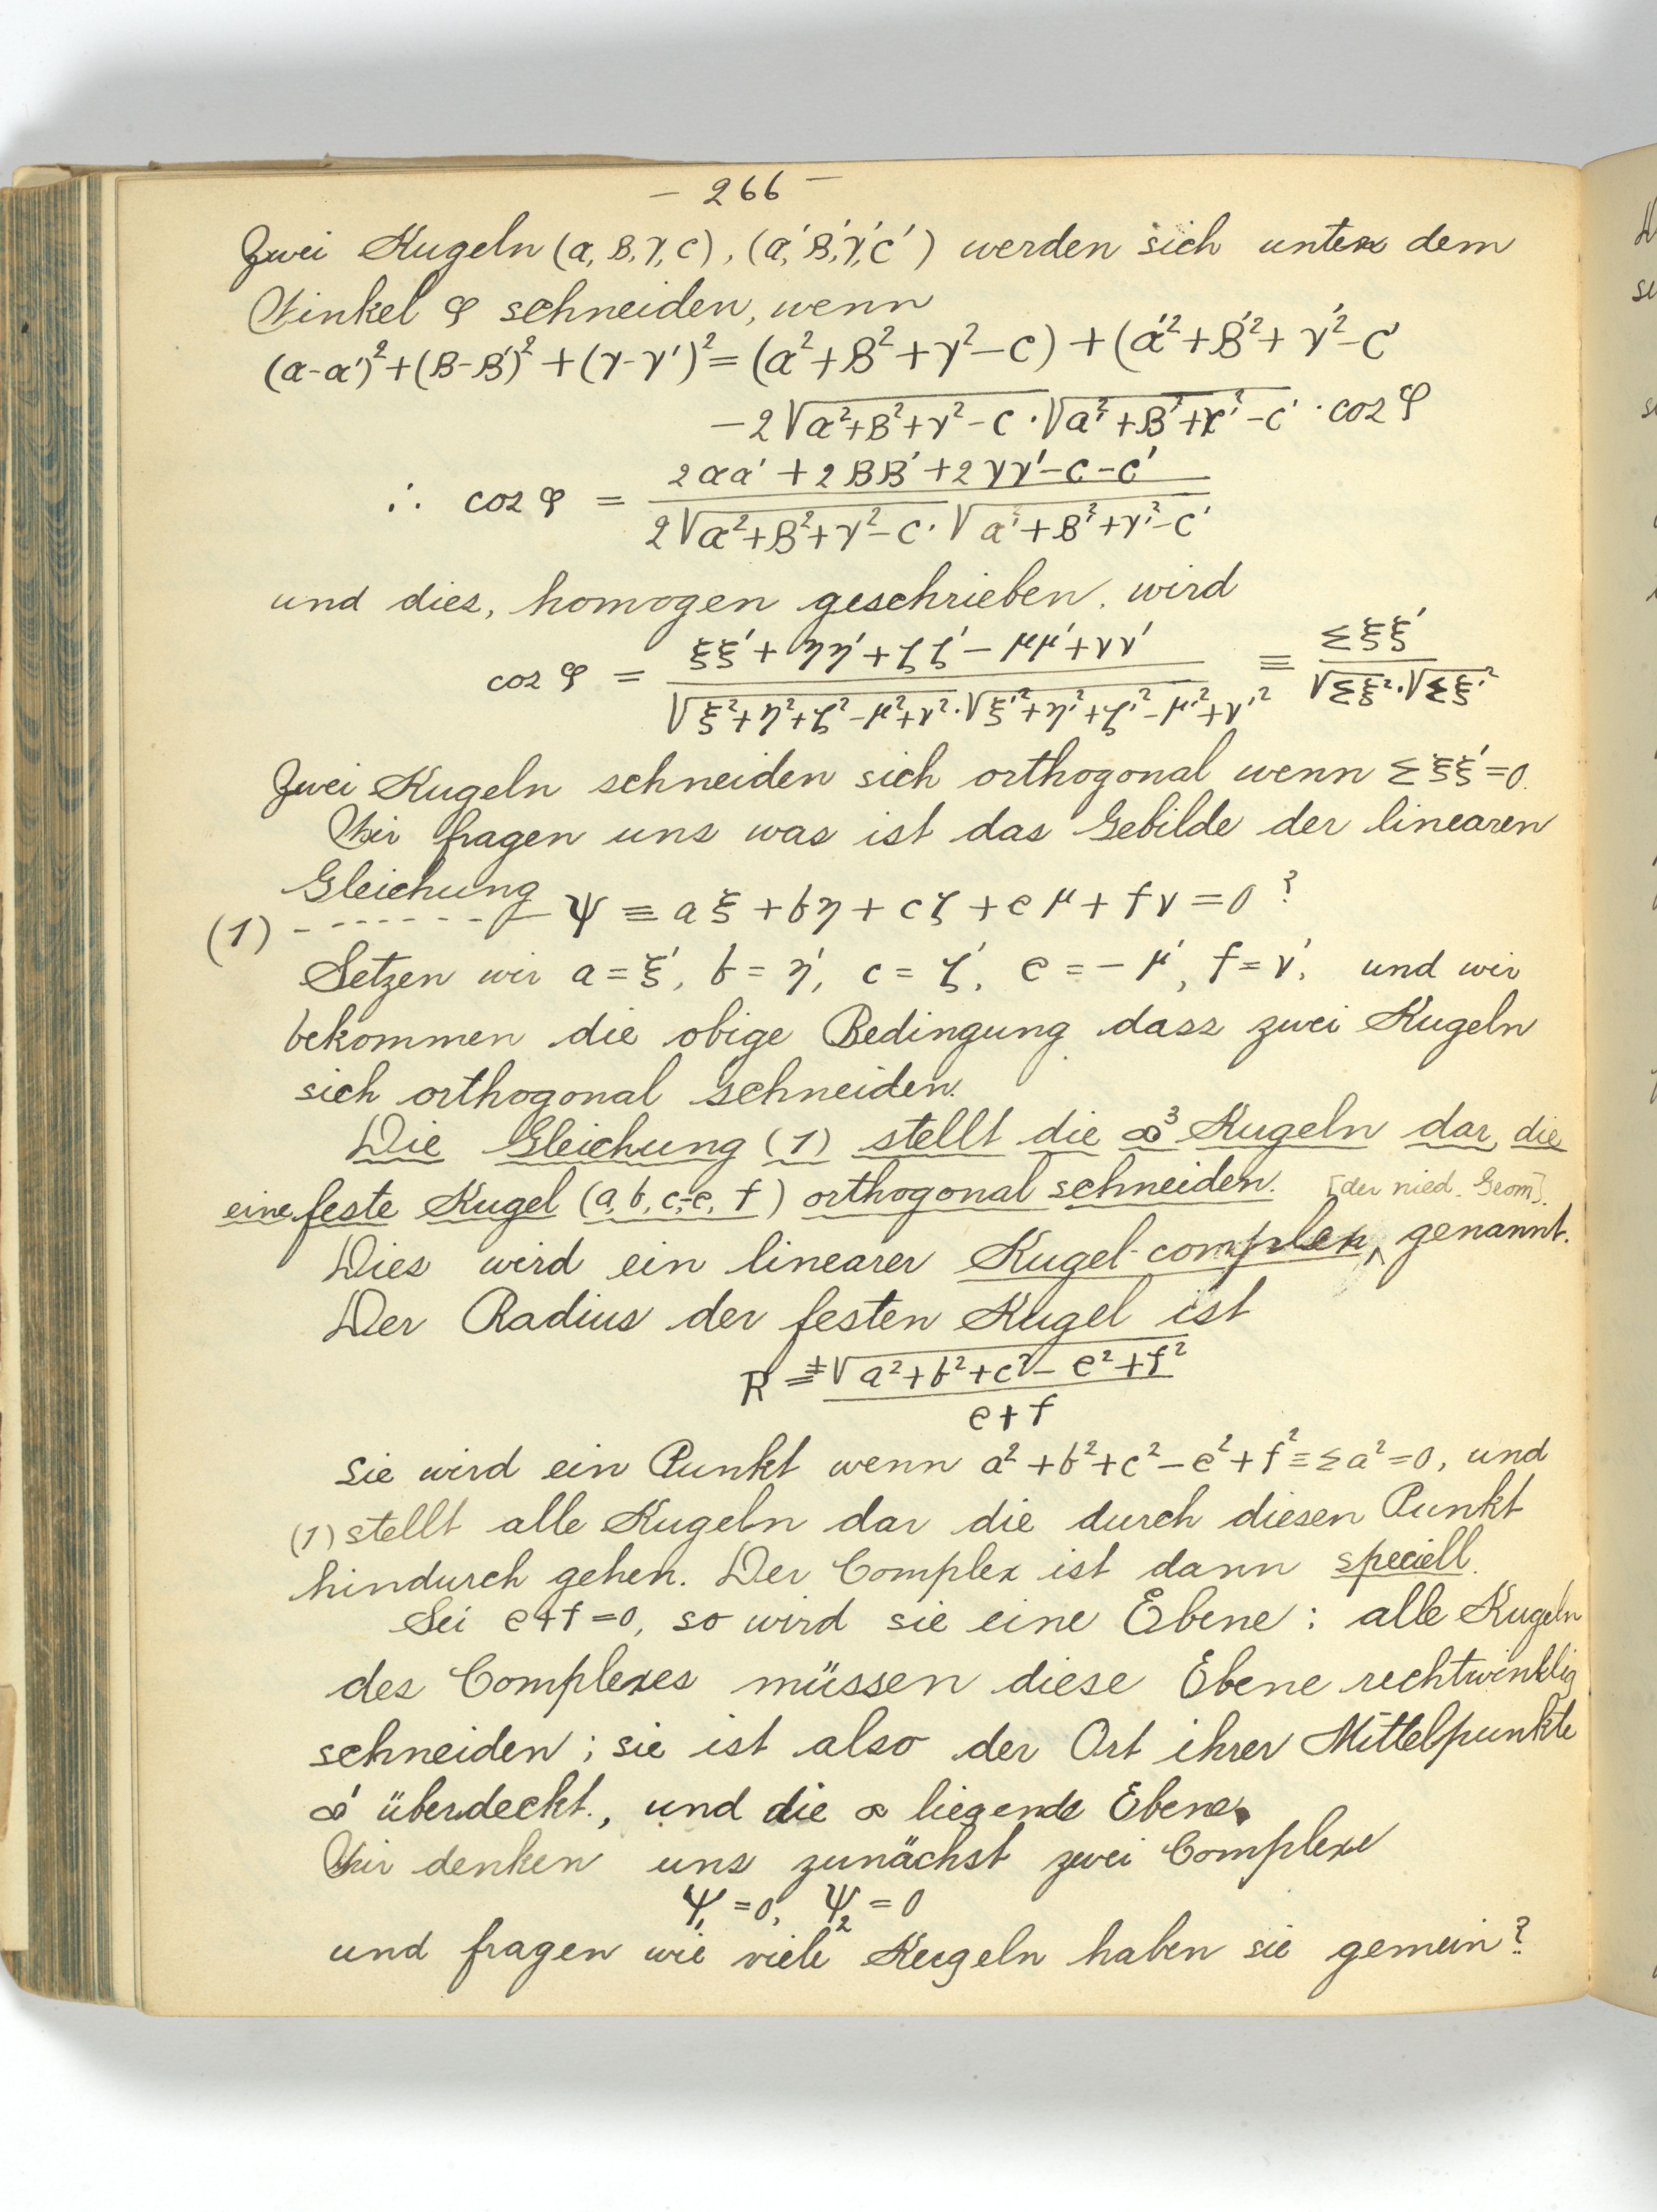 – 266 –
Zwei Kugeln (α, β, γ, c), (α', β', γ', c') werden sich unter dem
Winkel φ schneiden, wenn
(α-α')²+(β-β')²+(γ-γ')² = (α²+β²+γ²-c) + (α'²+β'²+γ'²-c'
-2√α²+β²+γ²-c · √α'²+β'²+γ'²-c' · cos φ
∴ cos φ = 2αα' + 2ββ' + 2γγ' - c - c' / 2√α²+β²+γ²-c · √α'²+β'²+γ'²-c'
und dies, homogen geschrieben, wird
cos φ = ξξ' + ηη' + ζζ' - μμ' + νν' / √ξ²+η²+ζ²-μ²+ν² · √ξ'²+η'²+ζ'²-μ'²+ν'² ≡ Σξξ' / √Σξ² · √Σξ'²
Zwei Kugeln schneiden sich orthogonal wenn Σξξ'=0.
Wir fragen uns was ist das Gebilde der linearen
Gleichung
(1) ------- Ψ ≡ aξ + bη + cζ + eμ + fν = 0 ?
Setzen wir a = ξ', b = η', c = ζ', e = -μ', f = ν', und wir
bekommen die obige Bedingung dass zwei Kugeln
sich orthogonal schneiden.
Die Gleichung (1) stellt die ∞³ Kugeln dar, die
eine feste Kugel (a, b, c, -e, f) orthogonal schneiden. [der nied. Geom].
Dies wird ein linearer Kugel-complex ‸ genannt.
Der Radius der festen Kugel ist
R = ±√a²+b²+c²-e²+f² / e+f
sie wird ein Punkt wenn a²+b²+c²-e²+f² ≡ Σa² = 0, und
(1) stellt alle Kugeln dar die durch diesen Punkt
hindurch gehen. Der Complex ist dann speciell.
Sei e+f=0, so wird sie eine Ebene : alle Kugeln
des Complexes müssen diese Ebene rechtwinklig
schneiden ; sie ist also der Ort ihrer Mittelpunkte
∞' überdeckt., und die ∞ liegende Ebene.
Wir denken uns zunächst zwei Complexe
Ψ₁ = 0, Ψ₂ = 0
und fragen wie viele Kugeln haben sie gemein?